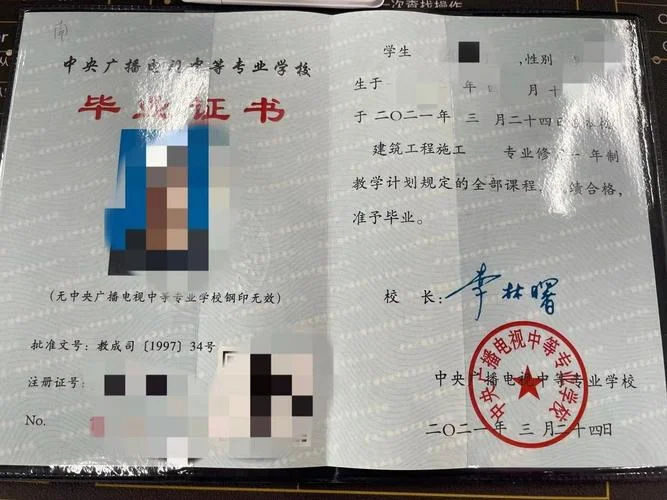 一次查找操作
南
中央广播电视中等专业学校
毕业证书
(无中央广播电视中等专业学校钢印无效)
批准文号：教成司〔1997〕34号
注册证号：
No.
学生 ,性别
生于 年 月十
于二〇二一年 三 月二十四日
建筑工程施工 专业修 一年制
教学计划规定的全部课程, 绩合格,
准予毕业。
校 长：李林曙
中央广播电视中等专业学校
中央广播电视中等专业学校
二〇二一年 三 月二十四日